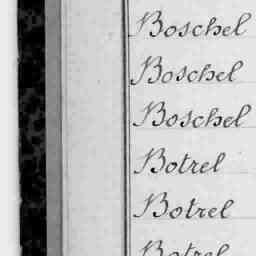 Boschel
Boschel
Boschel
Botrel
Botrel
Botrel